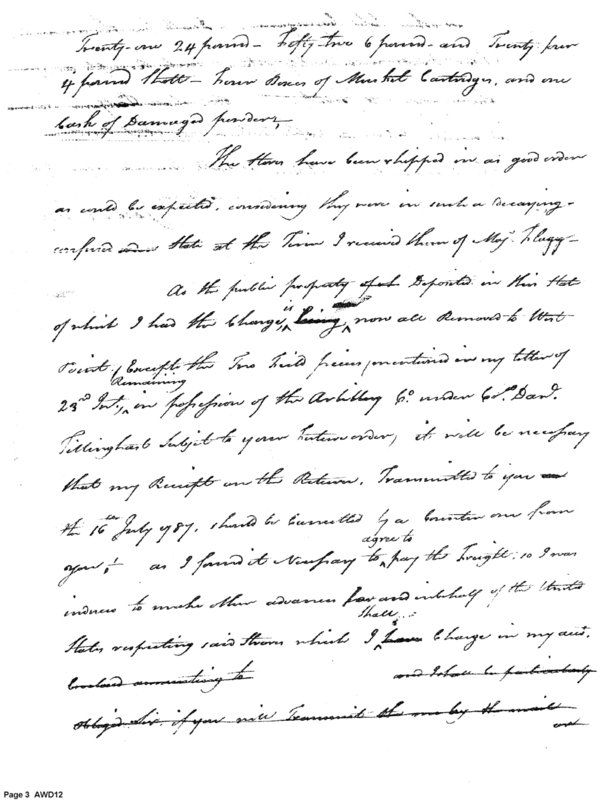 Twenty-one 24 pound - Fifty two 6 pound - and Twenty four
4 pound Shott - Four Boxes of Musket Cartridges, and one
Cask of Damaged powder,
The Stores have been shipped in as good order
as could be expected, considering they were in such a decaying -
confused State at the Time I received them of Majr. Flagg -
As the public property Deposited in this State
of which I had the Charge, is being, now all Removed to West
Point, Except the Two Field pieces, mentioned in my letter of
Remaining
23rd Int., in possession of the Artillery Co. under Col. Danl.
Tillinghast Subject to your future order, it will be necessary
that my Receipt on the Return, Transmitted to you
the 16th July 1787, should be Cancelled by a Counter one from
agree to
you - as I found it Necessary to pay the Freight; so I was
induced to make other advances for and in behalf of the United
Shall
States respecting said Stores which I have Charge in my acct.
Enclosed amounting to and I shall be particularly
obliged Sir, if you will Transmit the me by the mail